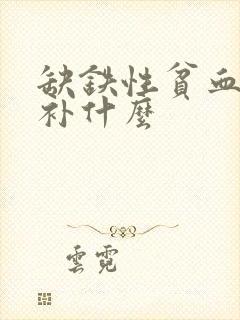 缺鉄性貧血
补什麽
雲霓